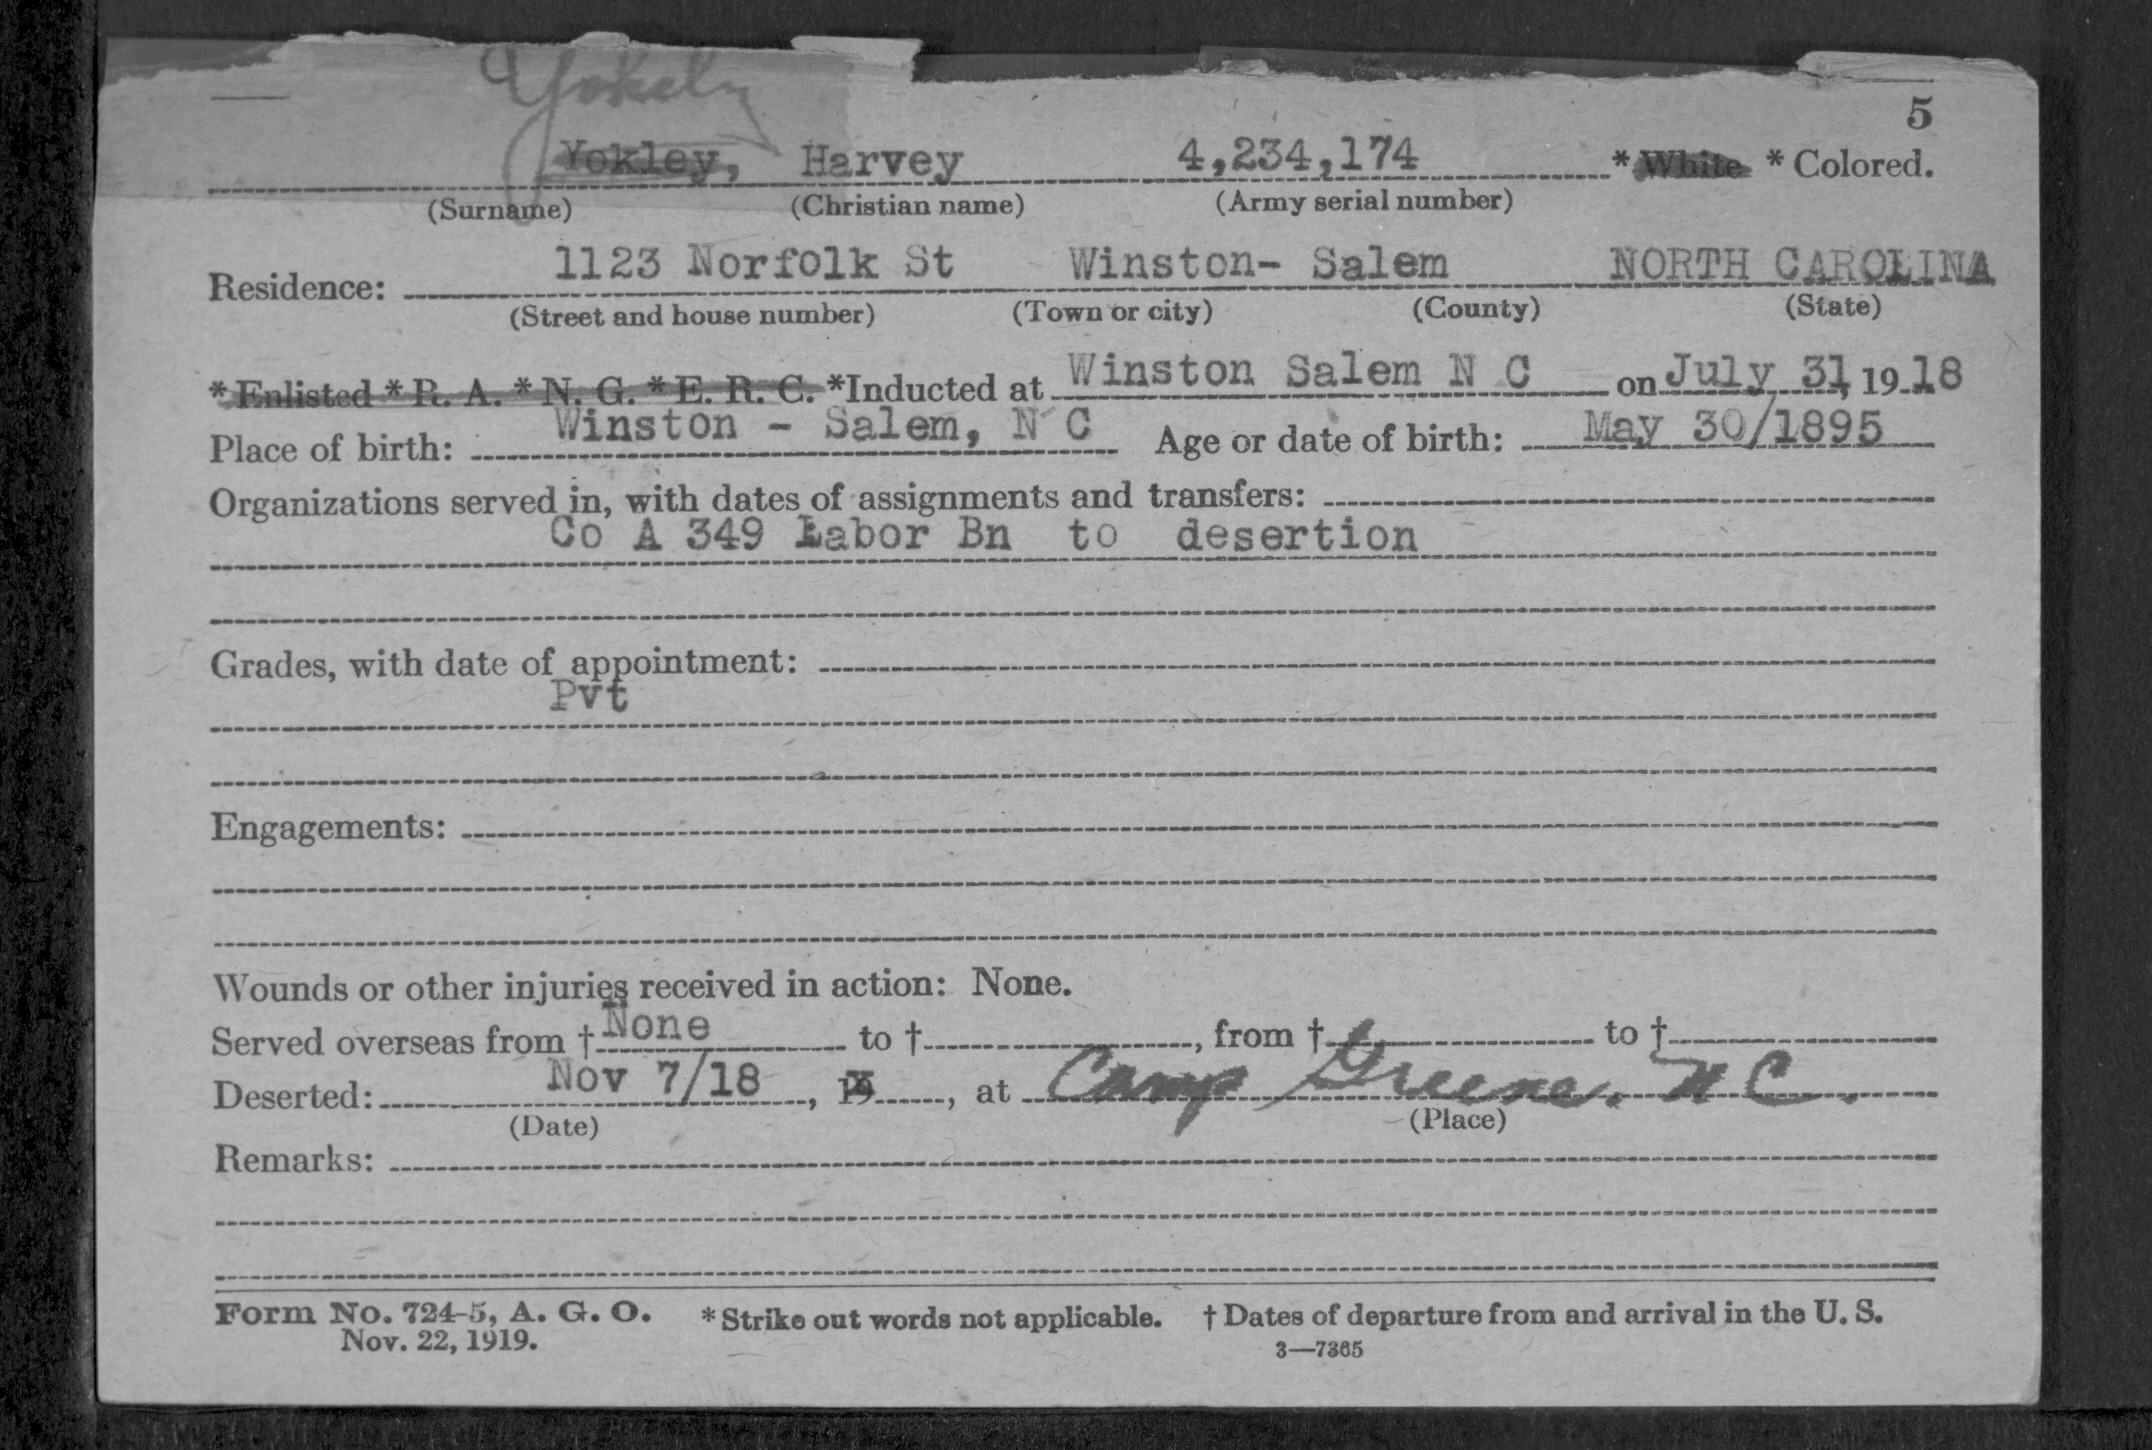 Yokely
5
Yokley, Harvey 4,234,174 * White * Colored.
(Surname) (Christian name) (Army serial number)
Residence: 1123 Norfolk St Winston- Salem NORTH CAROLINA
(Street and house number) (Town or city) (County) (State)
* Enlisted * R. A. * N. G. * E. R. C. *Inducted at Winston Salem N C on July 31, 19 18
Place of birth: Winston - Salem, N C Age or date of birth: May 30/1895
Organizations served in, with dates of assignments and transfers:
Co A 349 Labor Bn to desertion
Grades, with date of appointment:
Pvt
Engagements:
Wounds or other injuries received in action: None.
Served overseas from † None to †, from † to †
Deserted: Nov 7/18, 19, at Camp Greene. N C.
(Date) (Place)
Remarks:
Form No. 724-5, A. G. O. * Strike out words not applicable. † Dates of departure from and arrival in the U. S.
Nov. 22, 1919. 3—7365